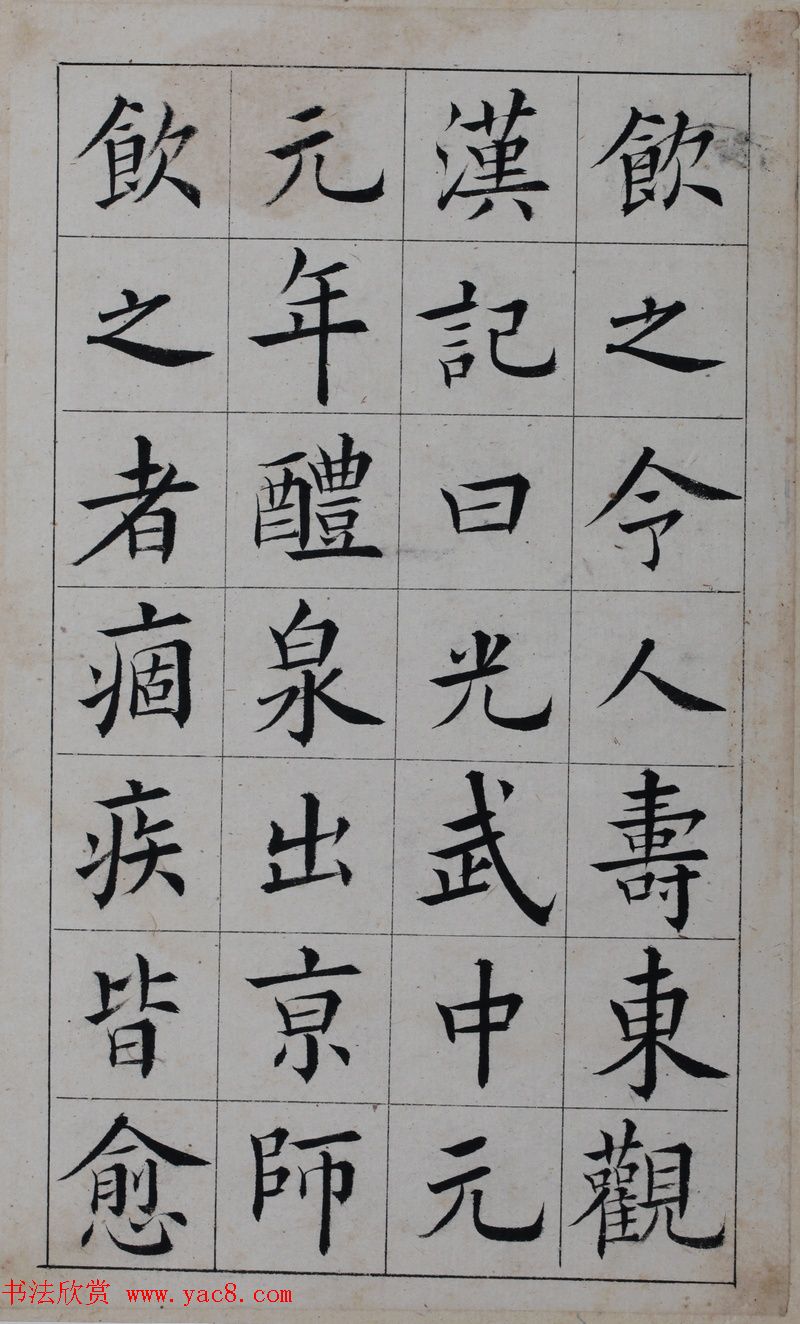 飲之令人壽東觀
漢記曰光武中元
元年醴泉出亰師
飲之者痼疾皆愈
书法欣赏 www.yac8.com